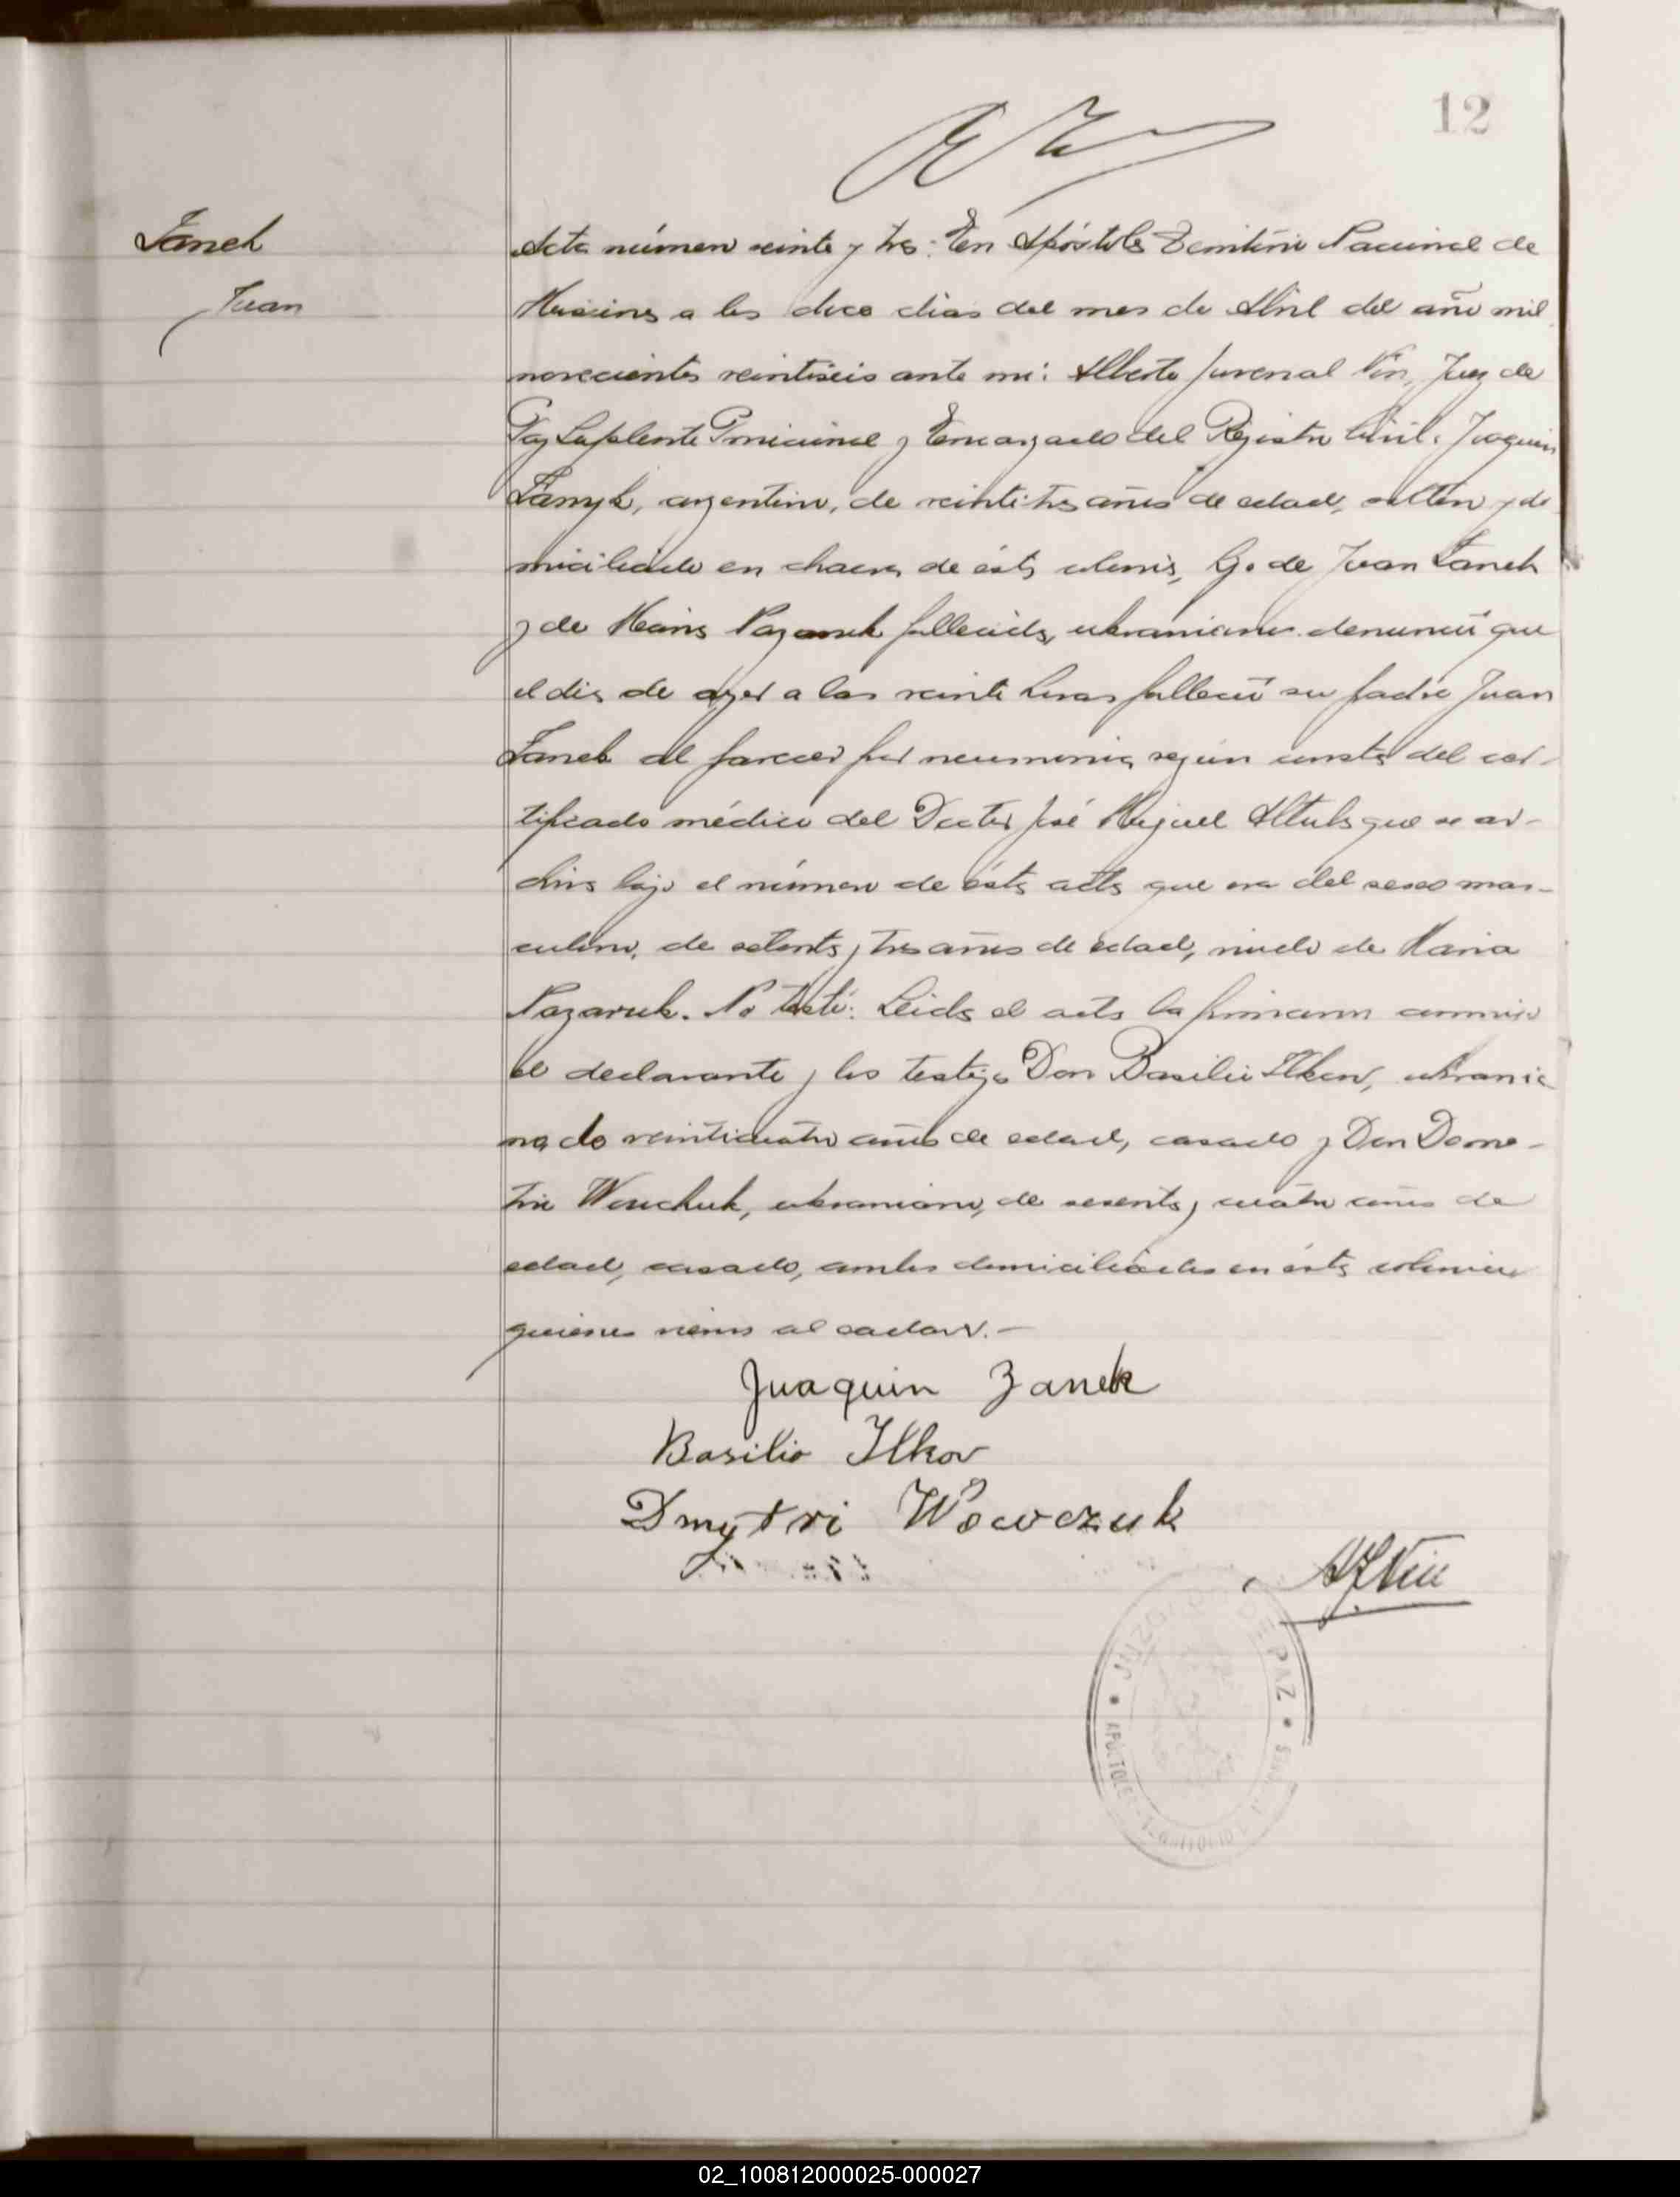 12
Zanek
Juan
Acta número veinte y tres: En Apóstoles Territorio Nacional de
Misiones a los doce dias del mes de Abril del año mil
novecientos veintiseis ante mi: Alberto Juvenal Nin, Juez de
Paz Suplente Provisional y Encargado del Registro Civil. Joaquin
Zanyk, argentino, de veinti-tres años de edad, soltero y do
miciliado en chacra de ésta colonia, hijo de Juan Zanek
y de Maria Nazaruk fallecida, ukranianos denunció que
el dia de ayer a las veinte horas falleció su padre Juan
Zanek al parecer por neumonia, según consta del cer-
tificado médico del Doctor José Miguel que se ar-
chiva bajo el número de ésta acta que era del sexo mas-
culino, de setenta y tres años de edad, viudo de Maria
Nazaruk. No testó: Leida el acta la firmaron conmigo
el declarante y los testigos Don Basilio Ilkow, ukrania
no, de veinticuatro años de edad, casado y Don Deme-
trio Wouchuk, ukraniano, de sesenta y cuatro años de
edad, casado, ambos domiciliados en ésta colonia
quienes vieron al cadaver.-
Juaquin Zanek
Basilio Ilkov
Dmytri Wowczuk
AJNin
JUZGADO DE PAZ
02_100812000025-000027